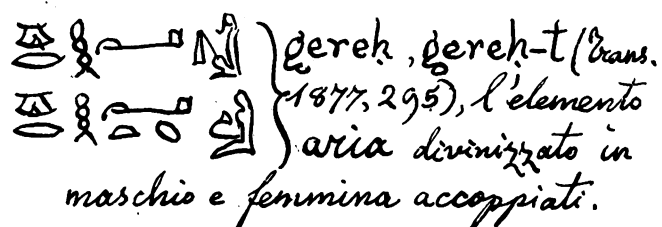 gereḥ, gereḥ-t (Trans.
1877, 295), l'elemento
aria divinizzato in
maschio e femmina accoppiati.